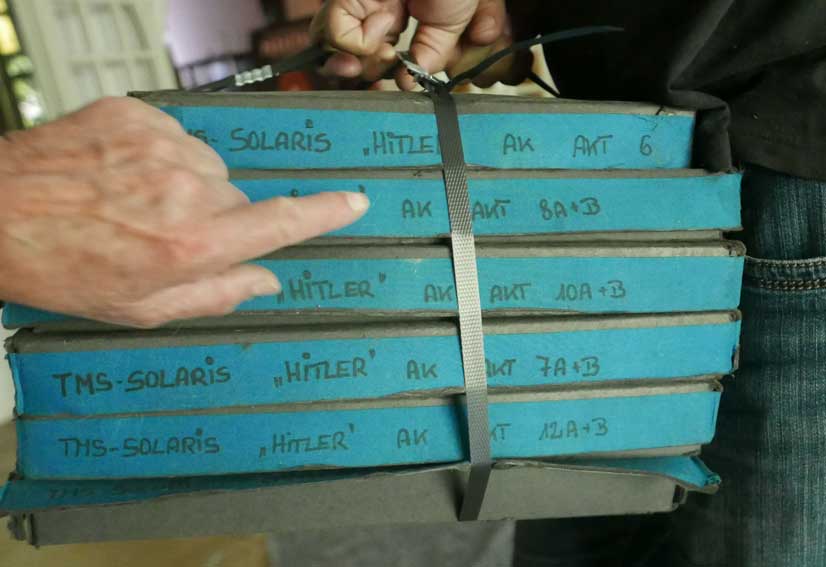 SOLARiS „HiTLE AK AKT 6
AK AKT 8A+B
„HiTLER" AK AKT 10A+B
TMS-SOLARiS „HiTLER" AK KT 7A+B
TMS-SOLARiS „HiTLER" AK KT 12A+B
TMS-